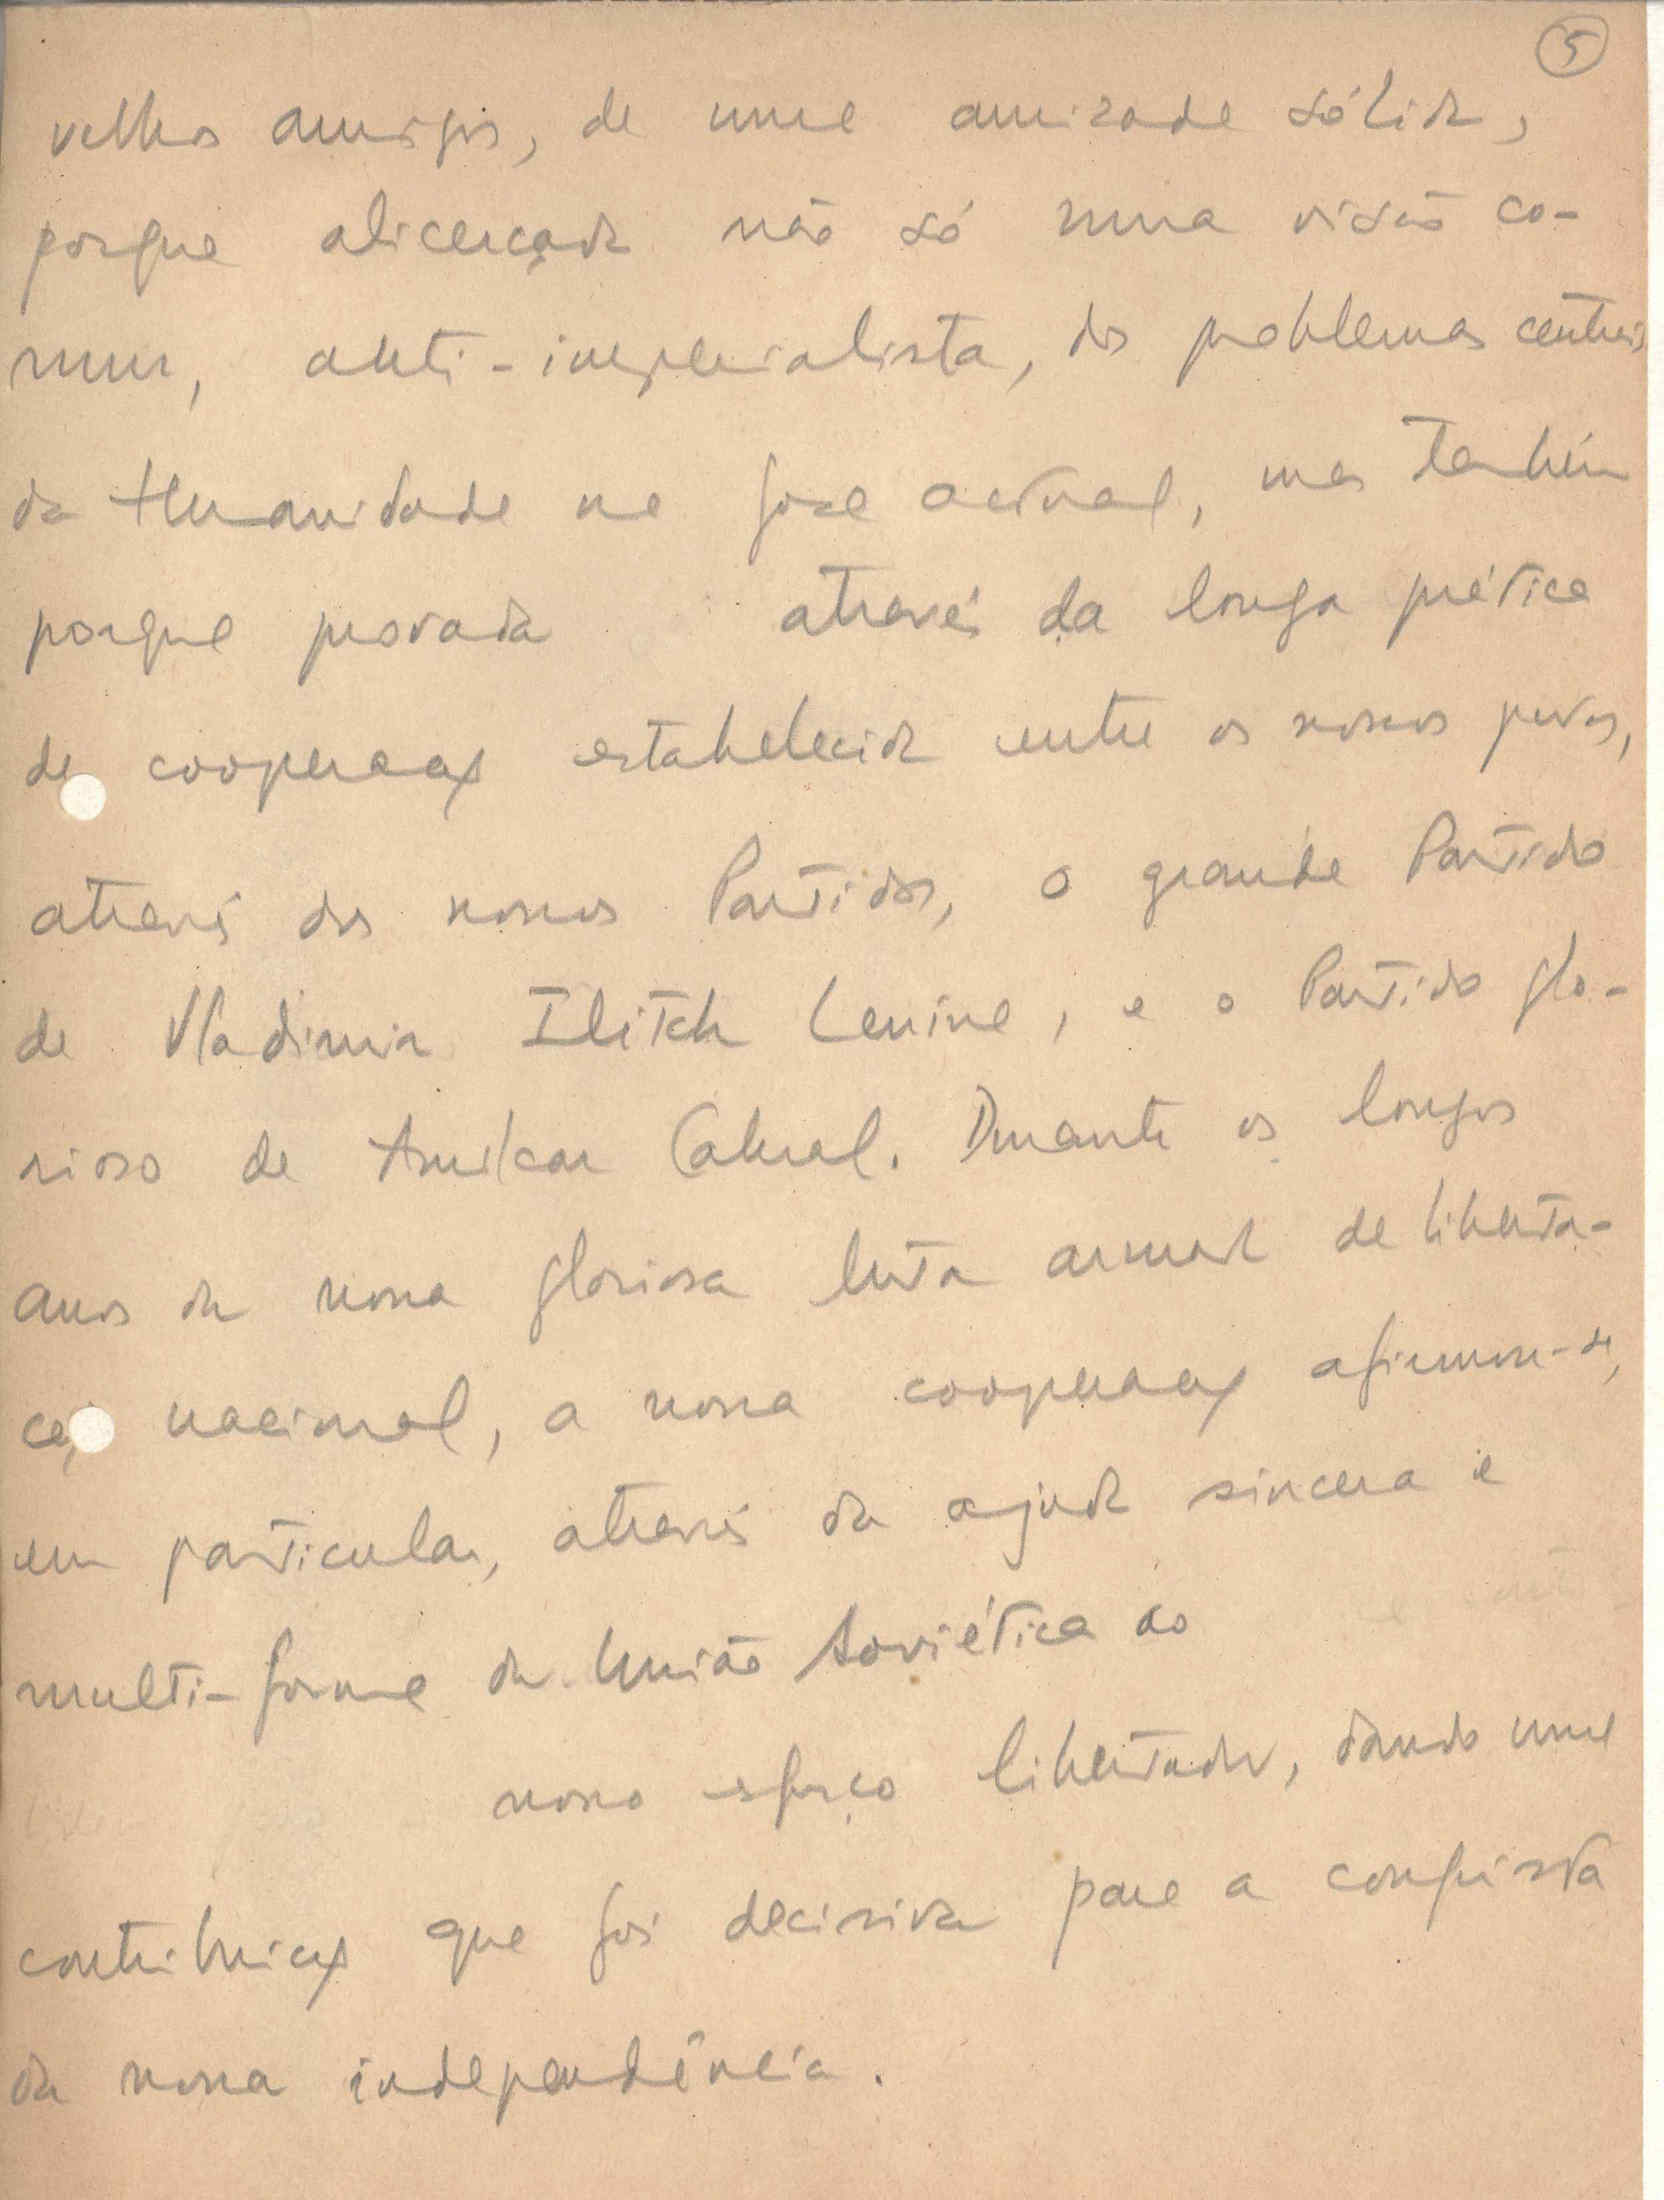 5
velhos amigos, de uma amizade sólida,
porque alicerçada não só numa visão co-
mum, anti-imperialista, dos problemas centrais
da Humanidade na fase actual, mas também
porque provada através da longa prática
de cooperação estabelecida entre os nossos povos,
através dos nossos Partidos, o grande Partido
de Vladimir Ilitch Lenine, e o Partido glo-
rioso de Amilcar Cabral. Durante os longos
anos da nossa gloriosa luta armada de liberta-
ção nacional, a nossa cooperação afirmou-se,
em particular, através da ajuda sincera e
multi-forme da União Soviética ao
nosso esforço libertador, dando uma
contribuição que foi decisiva para a conquista
da nossa independência.